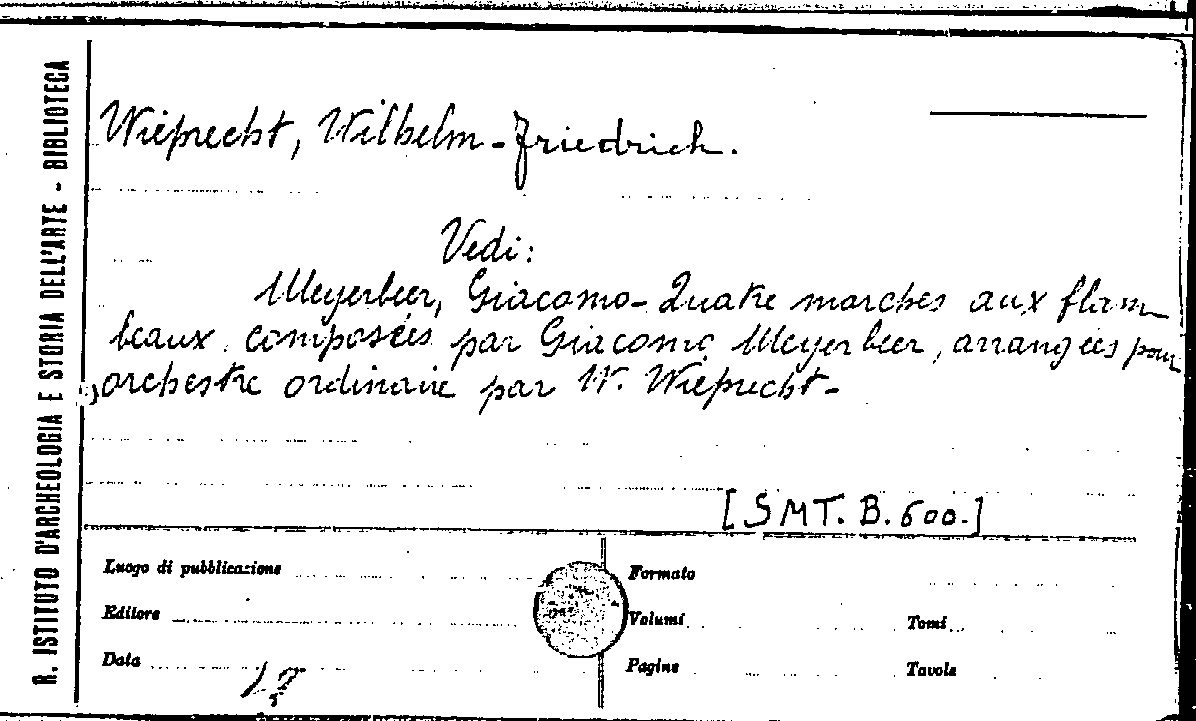 R. ISTITUTO D'ARCHEOLOGIA E STORIA DELL'ARTE - BIBLIOTECA
Wieprecht, Wilhelm-Friedrich.
Vedi:
Meyerbeer, Giacomo- Quatre marches aux flam
beaux composées par Giacomo Meyerbeer, arrangées pour
orchestre ordinaire par W. Wieprecht-
[SMT. B. 600.]
Luogo di pubblicazione
Formato
Editore
Volumi
Tomi
Data
Pagine
Tavole